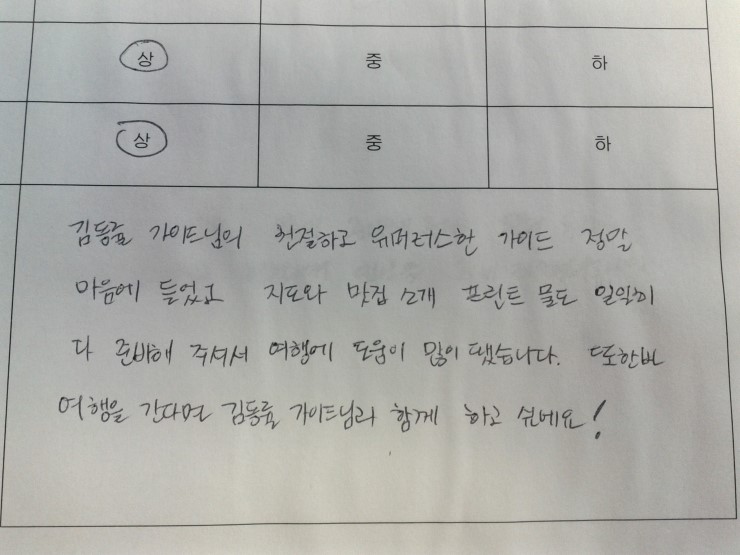 상 중 하
상 중 하
김동률 가이드님의 친절하고 유머러스한 가이드 정말
마음에 들었고 지도와 맛집 소개 프린트 물도 일일히
다 준비해 주셔서 여행에 도움이 많이 됐습니다. 또한번
여행을 간다면 김동률 가이드님과 함께 하고 싶네요!